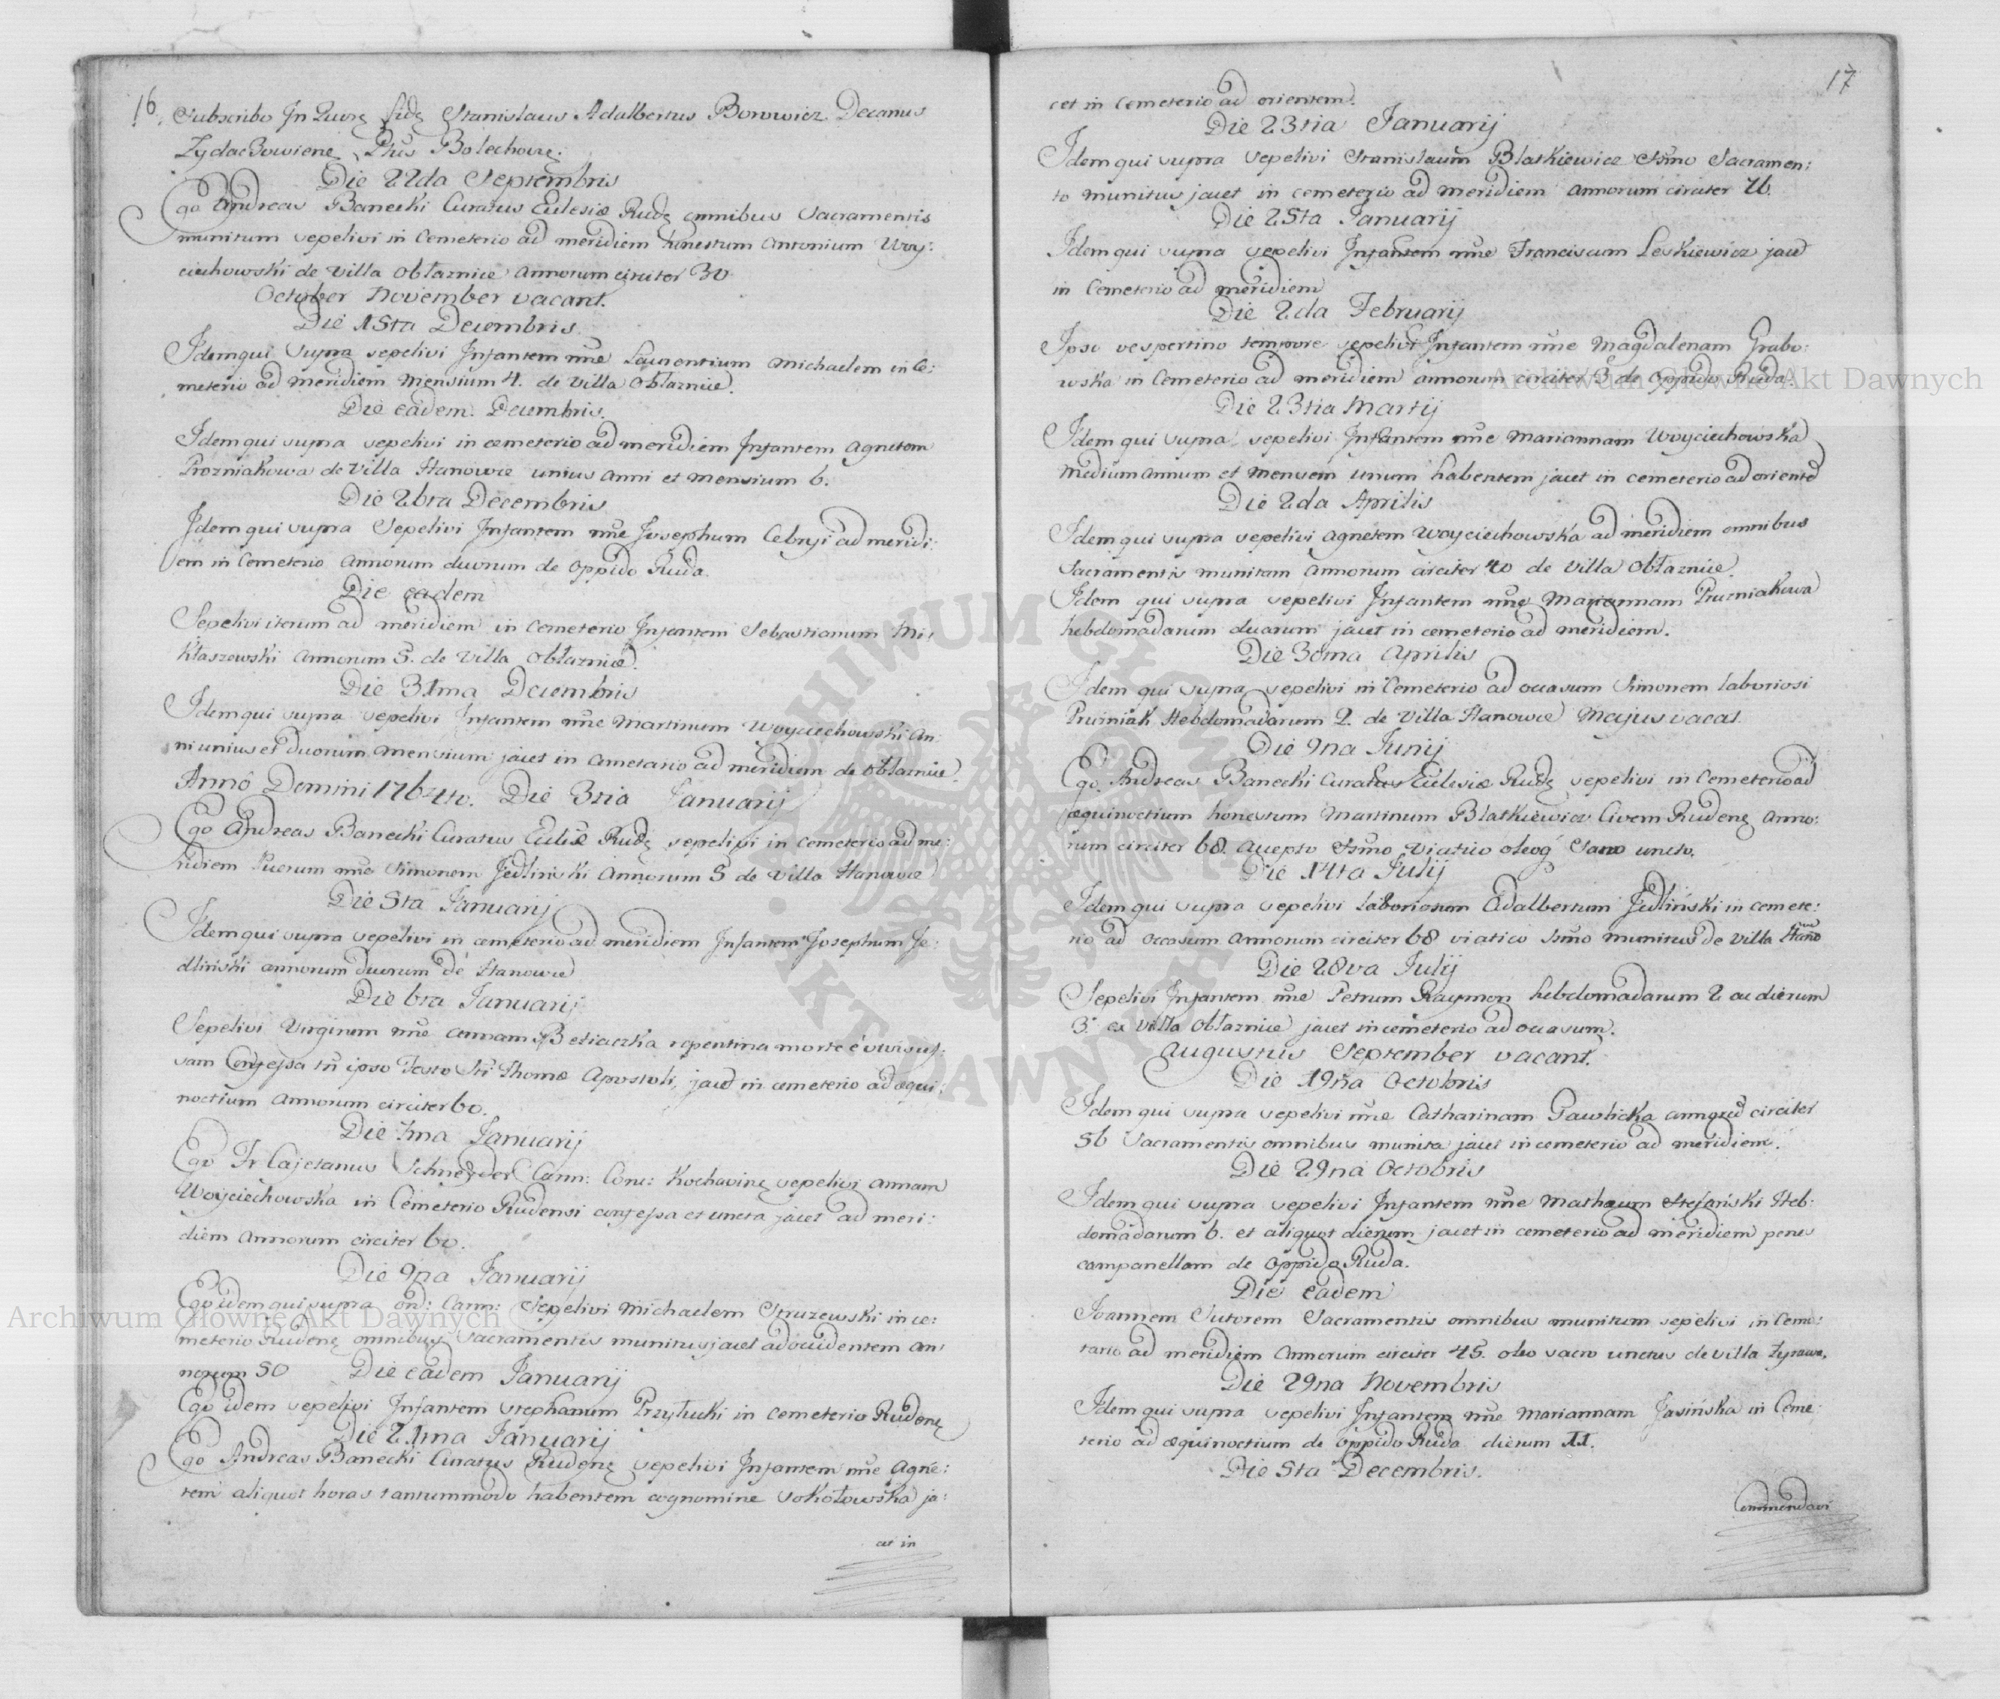 16.
Subscribo In Quorz fidz Stanislaus Adalbertus Borowicz Decanus
ZydacZowienę, Plus Bolechovię.
Die 22da Septembris
Ego Andreas Banecki Curatus Eclesiæ Rudę omnibus Sacramentis
munitum sepelivi in Cemeterio ad meridiem honestum Antonium Woy:
ciechowski de villa Obłaznice Annorum circiter 30
October November vacant.
Die 15ta Decembris.
Idem qui Supra sepelivi Infantem nñe Laurentium Michaelem in Ce:
meterio ad meridiem Mensium 4. de villa Obłaznice.
Die eadem Decembris.
Idem qui supra sepelivi in cemeterio ad meridiem Infantem Agnetem
Prozniakowa de Villa Hanowce unius Anni et Mensium 6.
Die 26ta Decembris
Idem qui supra Sepelivi Infantem nñe Josephum Cebryi ad meridi:
em in Cemeterio Annorum duorum de Oppido Ruda.
Die eadem
Sepelivi iterum ad meridiem in Cemeterio Infantem Sebastianum Mi:
kłaszewski Annorum 5. de Villa Obłaznice.
Die 31ma Decembris
Idem qui supra sepelivi Infantem nñe Martinum Woyciechowski An:
ni unius et duorum Mensium jacet in Cmetario ad meridiem de Obłaznice.
Anno Domini 1764to. Die 3tia Januarij
Ego Andreas Banecki Curatus Eclisæ Rudę sepelivi in Cemeterio ad me:
ridiem Puerum nñe Simonem Jedliński Annorum 5 de Villa Hanowce
Die 5ta Januarij
Idem qui supra sepelivi in cemeterio ad meridiem Infantem Josephum Je:
dliński annorum duorum de Hanowce
Die 6ta Januarij
Sepelivi Virginem nñe Annam Beliaczka repentina morte è vivis
sam Confessa in ipso Festo Sti Thomæ Apostoli, jacet in cemeterio ad æqui:
noctium Annorum circiter 60.
Die 7ma Januarij
Ego Fr Cajetanus Schneyder Carm: Conv: Kochavinę sepelivi Annam
Woyciechowska in Cemeterio Rudensi confessa et uncta jacet ad meri:
diem Annorum circiter 60.
Die 9na Januarij
Ego idem qui supra Ord: Carm: Sepelivi Michaelem Struzewski in ce:
meterio Rudenę omnibus Sacramentis munitus jacet ad occidentem An:
norum 50 Die eadem Januarij
Ego idem sepelivi Infantem Stephanum Przyłucki in Cemeterio Rudenę
Die 21ma Januarij
Ego Andreas Banecki Curatus Rudenę sepelivi Infantem nñe Agne:
tem aliquot horas tantummodo habentem cognomine Sokołowska ja:
cet in
17
cet in Cemeterio ad orientem.
Die 23tia Januarij
Idem qui supra Sepelivi Stanislaum Blatkiewicz Ssmo Sacramen:
to munitus jacet in cemeterio ad meridiem Annorum circiter 76.
Die 25ta Januarij
Idem qui supra sepelivi Infantem nñe Franciscum Leskiewicz jacet
in Cemeterio ad meridiem
Die 2da Februarij
Ipso vespertino tempore sepelivi Infantem nñe Magdalenam Grabo:
wska in Cemeterio ad meridiem annorum circiter 3 de Oppido Ruda.
Die 23tia Martij
Idem qui supra sepelivi Infantem nñe Mariannam Woyciechowska
Medium annum et mensem unum habentem jacet in cemeterio ad orientem
Die 2da Aprilis
Idem qui supra sepelivi Agnetem Woyciechowska ad meridiem omnibus
Sacramentis munitam Annorum circiter 40 de Villa Obłaznice.
Idem qui supra sepelivi Infantem nñe Mariannam Prusniakowa
hebdomadarum duarum jacet in cemeterio ad meridiem.
Die 30ma Aprilis
Idem qui supra sepelivi in Cemeterio ad occasum Simonem laboriosi
Prusniak Hebdomadarum 2. de Villa Hanowce Majus vacat.
Die 9na Junij
Ego Andreas Banecki Curatus Eclesiæ Rudę sepelivi in Cemeterio ad
æquinoctium honestum Martinum Blatkiewicz Civem Rudenę Anno:
rum circiter 68. Accepto Ssmo Viatico oleoq Sacro uncto.
Die 14ta Julij
Idem qui supra sepelivi laboriosum Adalbertum Jedliński in cemete:
rio ad Occasum Annorum circiter 68 viatico Ssmo munitus de Villa Hano
Die 28va Julij
Sepelivi Infantem nñe Petrum Raymon hebdomadarum 2 ac dierum
3. ex villa Obłaznice jacet in cemeterio ad occasum.
Augustus September vacant.
Die 19na Octobris
Idem qui supra sepelivi nñe Catharinam Pawlicka circiter
56 Sacramentis omnibus munita jacet in cemeterio ad meridiem.
Die 29na Octobris
Idem qui supra sepelivi Infantem nñe Mathæum Stefański Heb:
domadarum 6. et aliquot dierum jacet in cemeterio ad meridiem penes
campanellam de Oppido Ruda.
Die eadem
Joannem Sutorem Sacramentis omnibus munitum sepelivi in Ceme:
tario ad meridiem Annorum circiter 45. oleo sacro unctus de villa Zyrawa,
Die 29na Novembris
Idem qui supra sepelivi Infantem nñe Mariannam Jasińska in Ceme:
terio ad æquinoctium de Oppido Ruda dierum 11.
Die 5ta Decembris.
Commendavi
Archiwum Główne Akt Dawnych
Archiwum Główne Akt Dawnych
ARCHIWUM GŁÓWNE AKT DAWNYCH